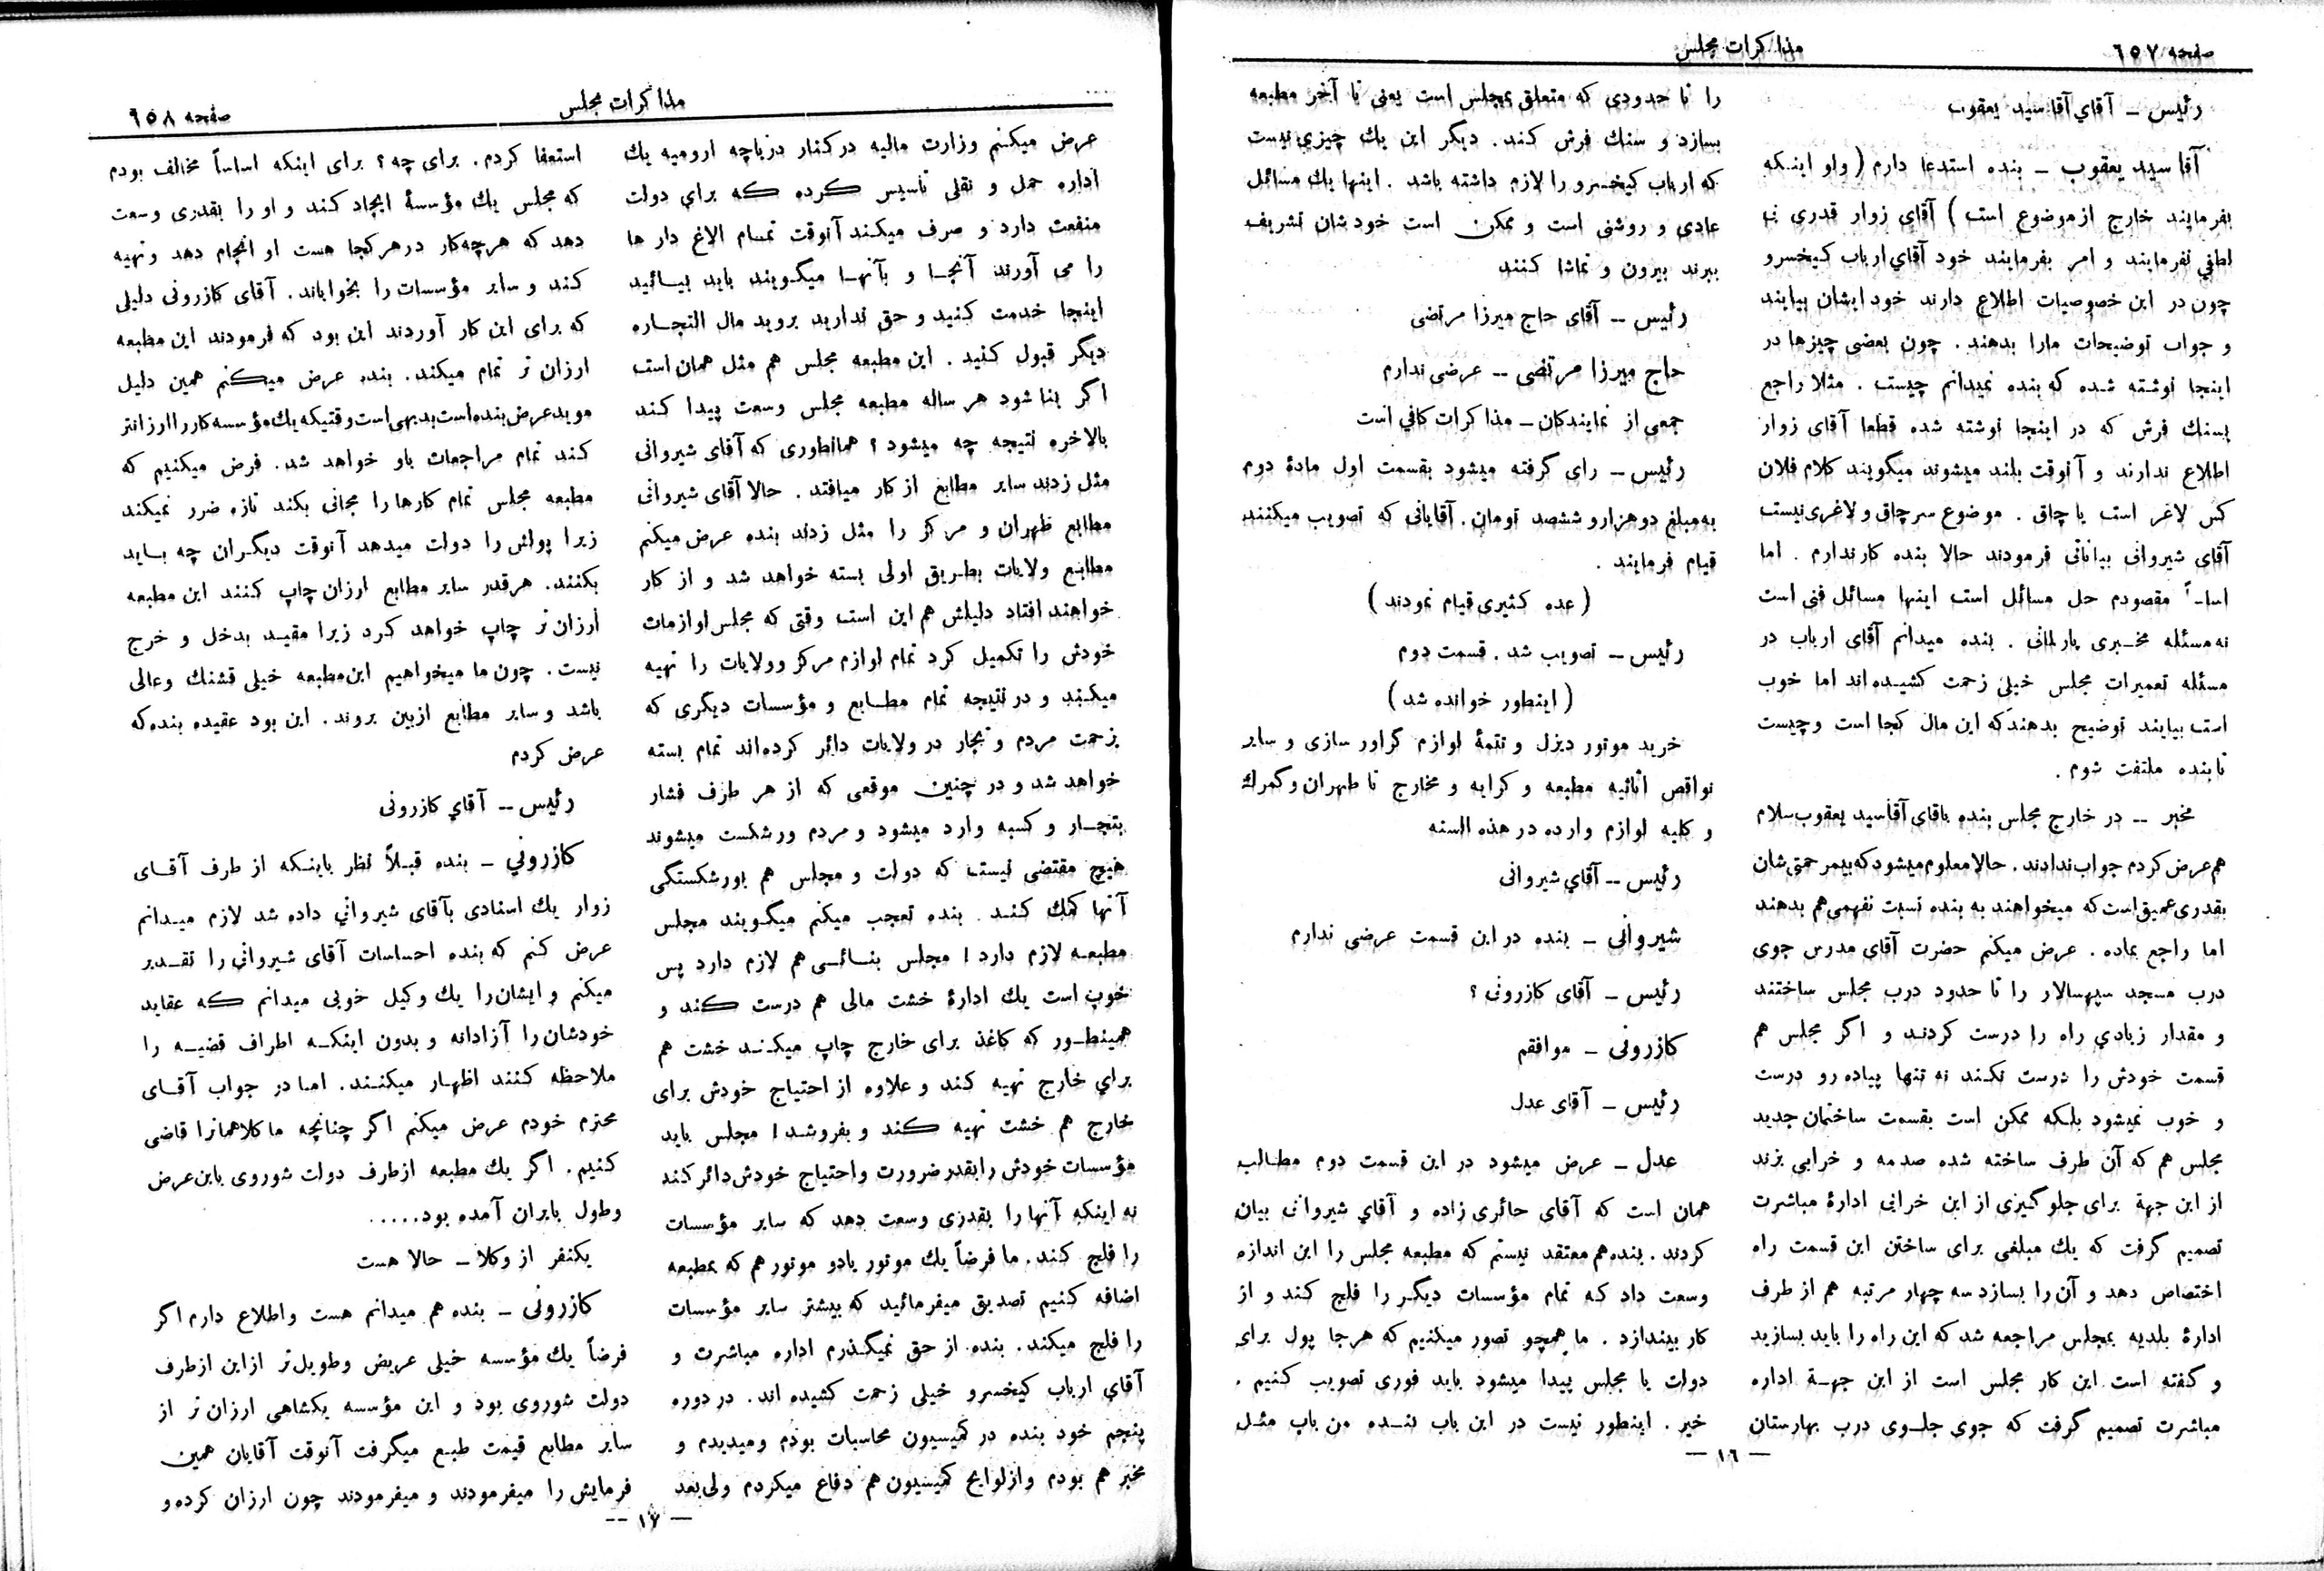 صفحه ٦٥٧
مذاکرات مجلس
رئیس – آقای آقا سید یعقوب
آقا سید یعقوب – بنده استدعا دارم ( ولو اینکه
بفرمایند خارج از موضوع است ) آقای زوار قدری بی
لطفی نفرمایند و امر بفرمایند خود آقای ارباب کیخسرو
چون در این خصوصیات اطلاع دارند خود ایشان بیایند
و جواب توضیحات مارا بدهند . چون بعضی چیزها در
اینجا نوشته شده که بنده نمیدانم چیست . مثلا راجع
بسنك فرش که در اینجا نوشته شده قطعا آقای زوار
اطلاع ندارند و آنوقت بلند میشوند میگویند کلام فلان
کس لاغر است یا چاق . موضوع سر چاق و لاغری نیست
آقای شیروانی بیاناتی فرمودند حالا بنده کار ندارم . اما
اساساً مقصودم حل مسائل است اینها مسائل فنی است
نه مسئله مخبری پارلمانی . بنده میدانم آقای ارباب در
مسئله تعمیرات مجلس خیلی زحمت کشیده اند اما خوب
است بیایند توضیح بدهند که این مال کجا است و چیست
تا بنده ملتفت شوم .
مخبر -- در خارج مجلس بنده بآقای آقا سید یعقوب سلام
هم عرض کردم جواب ندادند . حالا معلوم میشود که بیمرحمتی شان
بقدری عمیق است که میخواهند به بنده نسبت نفهمی هم بدهند
اما راجع بماده . عرض میکنم حضرت آقای مدرس جوی
درب مسجد سپهسالار را تا حدود درب مجلس ساختند
و مقدار زیادي راه را درست کردند و اگر مجلس هم
قسمت خودش را درست نکند نه تنها پیاده رو درست
و خوب نمیشود بلکه ممکن است بقسمت ساختمان جدید
مجلس هم که آن طرف ساخته شده صدمه و خرابی بزند
از این جهة برای جلوگیری از این خرابی ادارهٔ مباشرت
تصمیم گرفت که یك مبلغی برای ساختن این قسمت راه
اختصاص دهد و آن را بسازد سه چهار مرتبه هم از طرف
ادارهٔ بلدیه بمجلس مراجعه شد که این راه را باید بسازید
و گفته است این کار مجلس است از این جهـة اداره
مباشرت تصمیم گرفت که جوی جلـوی درب بهارستان
را تا حدودی که متعلق بمجلس است یعنی تا آخر مطبعه
بسازد و سنك فرش کند . دیگر این یك چیزی نیست
که ارباب کیخسرو را لازم داشته باشد . اینها یك مسائل
عادی و روشنی است و ممکن است خودشان تشریف
ببرند بیرون و تماشا کنند
رئیس -- آقای حاج میرزا مرتضی
حاج میرزا مرتضی -- عرضی ندارم
جمعی از نمایندکان – مذاکرات کافی است
رئیس -- رای گرفته میشود بقسمت اول مادهٔ دوم
به مبلغ دو هزار و ششصد تومان . آقایانی که تصویب میکنند
قیام فرمایند .
( عده کثیری قیام نمودند )
رئیس -- تصویب شد . قسمت دوم
( اینطور خوانده شد )
خرید موتور دیزل و تتمهٔ لوازم گراور سازی و سایر
نواقص اثاثیه مطبعه و کرایه و مخارج تا طهران و گمرك
و کلیه لوازم وارده در هذه السنه
رئیس -- آقای شیروانی
شیروانی – بنده در این قسمت عرضی ندارم
رئیس – آقای کازرونی ؟
کازرونی – موافقم
رئیس – آقای عدل
عدل – عرض میشود در این قسمت دوم مطالب
همان است که آقای حائری زاده و آقای شیروانی بیان
کردند . بنده هم معتقد نیستم که مطبعه مجلس را این اندازه
وسعت داد که تمام مؤسسات دیگر را فلج کند و از
کار بیندازد . ما همچو تصور میکنیم که هرجا پول برای
دولت یا مجلس پیدا میشود باید فوری تصویب کنیم .
خیر . اینطور نیست در این باب بنـده من باب مثـل
– ۱٦ –
مذاکرات مجلس
صفحه ٦٥٨
عرض میکنم وزارت مالیه در کنار دریاچه ارومیه یك
اداره حمل و نقلی تأسیس کرده که برای دولت
منفعت دارد و صرف میکند آنوقت تمام الاغ دار ها
را می آورند آنجـا و بآنهـا میگویند باید بیـائید
اینجا خدمت کنید و حق ندارید بروید مال التجـاره
دیگر قبول کنید . این مطبعه مجلس هم مثل همان است
اگر بنا شود هر ساله مطبعه مجلس وسعت پیدا کند
بالاخره نتیجه چه میشود ؟ همانطوری که آقای شیروانی
مثل زدند سایر مطابع از کار میافتد . حالا آقای شیروانی
مطابع طهران و مرکز را مثل زدند بنده عرض میکنم
مطابع ولایات بطریق اولی بسته خواهد شد و از کار
خواهند افتاد دلیلش هم این است وقتی که مجلس لوازمات
خودش را تکمیل کرد تمام لوازم مرکز و ولایات را تهیه
میکند و در نتیجه تمام مطـابع و مؤسسات دیگری که
بزحمت مردم و تجار در ولایات دائر کرده‌اند تمام بسته
خواهد شد و در چنین موقعی که از هر طرف فشار
بتجـار و کسبه وارد میشود و مردم ورشکست میشوند
هیچ مقتضی نیست که دولت و مجلس هم بورشکستگی
آنها کمك کند . بنده تعجب میکنم میگویند مجلس
مطبعه لازم دارد ! مجلس بنـائـی هم لازم دارد پس
خوب است یك ادارهٔ خشت مالی هم درست کند و
همینطـور که کاغذ برای خارج چاپ میکنـد خشت هم
برای خارج تهیه کند و علاوه از احتیاج خودش برای
خارج هم خشت تهیه کند و بفروشد ! مجلس باید
مؤسسات خودش را بقدر ضرورت و احتیاج خودش دائر کند
نه اینکه آنها را بقدری وسعت دهد که سایر مؤسسات
را فلج کند . ما فرضاً یك موتور یا دو موتور هم که بمطبعه
اضافه کنیم تصدیق میفرمائید که بیشتر سایر مؤسسات
را فلج میکند . بنده از حق نمیگـذرم اداره مباشرت و
آقای ارباب کیخسرو خیلی زحمت کشیده اند . در دوره
پنجم خود بنده در کمیسیون محاسبات بودم و میدیدم و
مخبر هم بودم و از لوایح کمیسیون هم دفاع میکردم ولی بعد
استعفا کردم . برای چه ؟ برای اینکه اساساً مخالف بودم
که مجلس یك مؤسسهٔ ایجاد کند و او را بقدری وسعت
دهد که هرچه کار در هر کجا هست او انجام دهد و تهیه
کند و سایر مؤسسات را بخواباند . آقای کازرونی دلیلی
که برای این کار آوردند این بود که فرمودند این مطبعه
ارزان تر تمام میکند . بنده عرض میکنم همین دلیل
موید عرض بنده است بدیهی است وقتیکه یك مؤسسه کار را ارزانتر
کند تمام مراجعات باو خواهد شد . فرض میکنیم که
مطبعه مجلس تمام کارها را مجانی بکند تازه ضرر نمیکند
زیرا پولش را دولت میدهد آنوقت دیگـران چه بـاید
بکنند . هرقدر سایر مطابع ارزان چاپ کنند این مطبعه
ارزان تر چاپ خواهد کرد زیرا مقیـد بدخل و خرج
نیست . چون ما میخواهیم این مطبعه خیلی قشنك و عالی
باشد و سایر مطابع از بین بروند . این بود عقیده بنده که
عرض کردم
رئیس -- آقای کازرونی
کازرونی – بنده قبـلاً نظر باینـکه از طرف آقـای
زوار یك اسنادی بآقای شیروانی داده شد لازم میـدانم
عرض کنم که بنده احساسات آقای شیروانی را تقـدیر
میکنم و ایشان را یك وکیل خوبی میدانم که عقاید
خودشان را آزادانه و بدون اینکـه اطراف قضیـه را
ملاحظه کنند اظهار میکننـد . امـا در جواب آقـای
محترم خودم عرض میکنم اگر چنانچه ما کلاهمانرا قاضی
کنیم . اگر یك مطبعه از طرف دولت شوروی باین عرض
و طول بایران آمده بود .....
یکنفر از وکلا – حالا هست
کازرونی – بنده هم میدانم هست و اطلاع دارم اگر
فرضاً یك مؤسسه خیلی عریض و طویل تر از این از طرف
دولت شوروی بود و این مؤسسه یکشاهی ارزان تر از
سایر مطابع قیمت طبع میگرفت آنوقت آقایان همین
فرمایش را میفرمودند و میفرمودند چون ارزان کرده و
– ۱۷ –